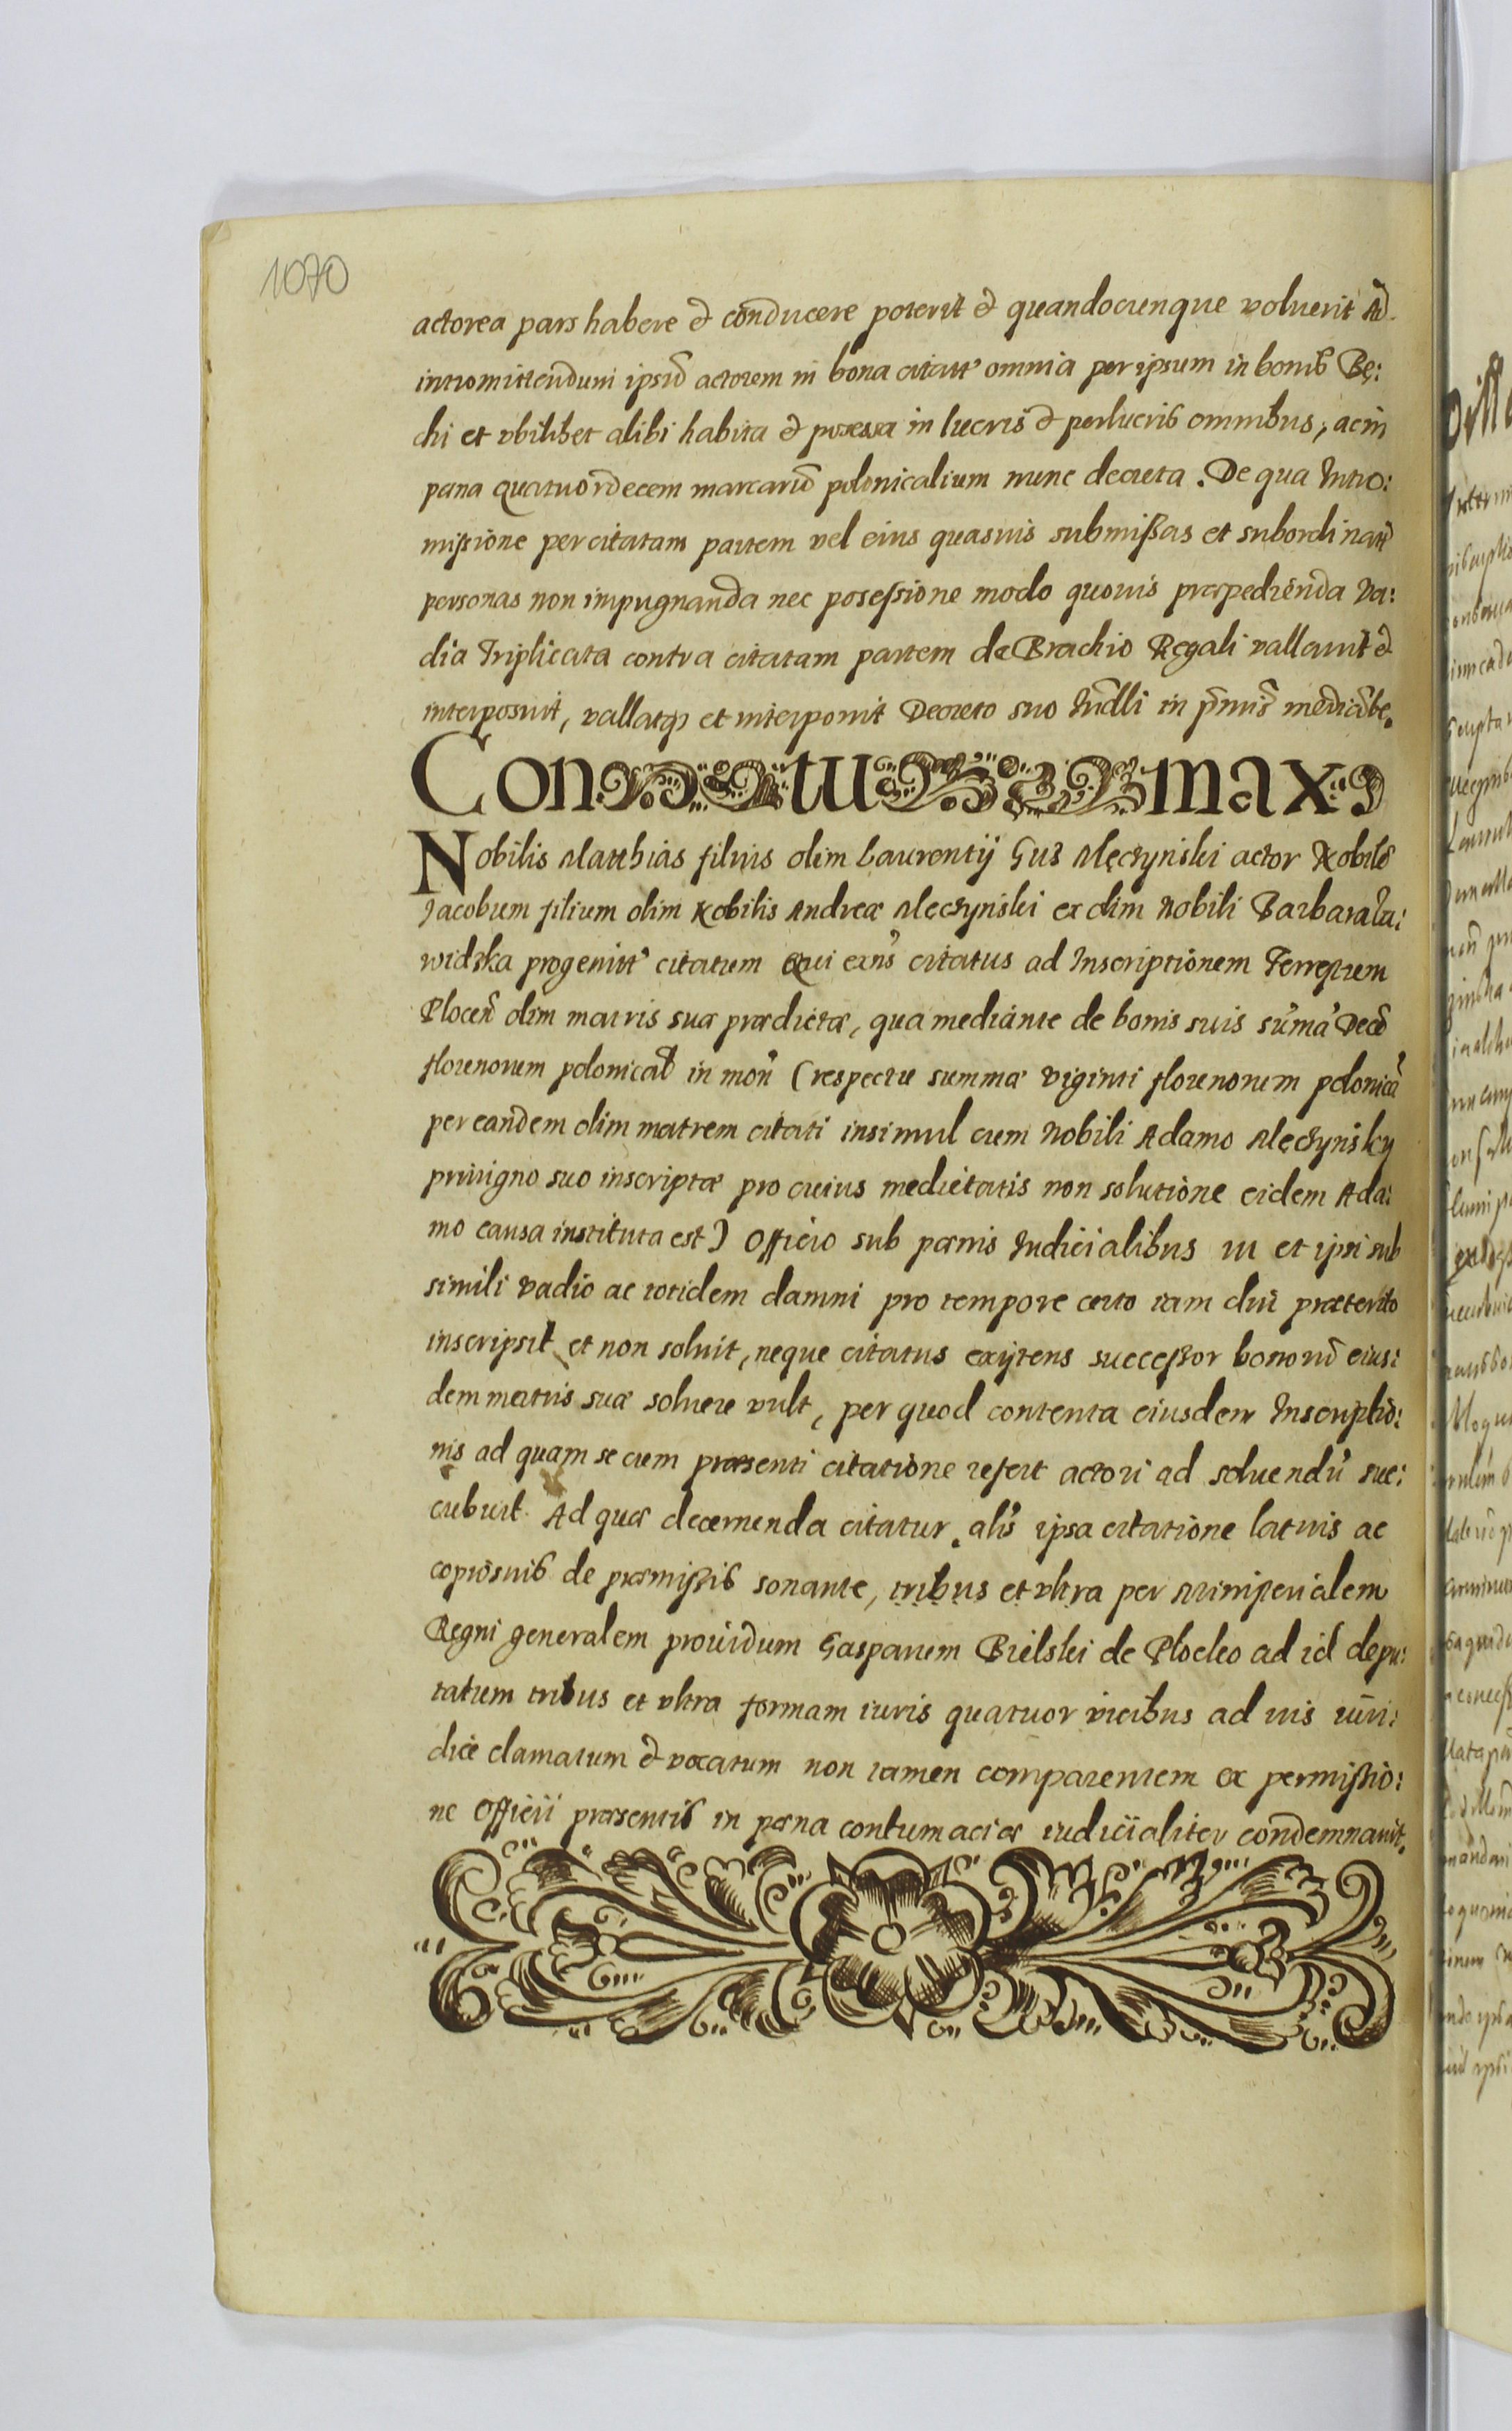 1070
actorea pars habere & conducere poterit & quandocunque voluerit Ad
intromittendum ipsũ actorem in bona citati omnia per ipsum in bonis Bę:
chi et vbilibet alibi habita & possessa in lucris & perlucris omnibus, ac in
pæna quatuordecem marcarũ polonicalium nunc decreta. De qua Intro:
missione per citatam partem vel eius quasuis submissas et subordinatas
personas non impugnanda nec posessione modo quouis præpedienda va:
dia Triplicata contra citatam partem de Brachio Regali vallauit &
interposuit, vallatq3 et interponit Decreto suo Iudlli in præmis mediãbe.
Contumax
Nobilis Matthias filius olim Laurentij Gus Męczynski actor Nobilẽ
Jacobum filium olim Nobilis Andreæ Męczynski ex olim Nobili Barbara
widzka progenitũ citatum Qui exñs citatus ad Inscriptionem Terrestrem
Ploceñ olim matris suæ prædictæ, qua mediante de bonis suis sũmã Decẽ
florenorum polonical in moñ (respectu summæ viginti florenorum polonicã
per eandem olim matrem citati insimul cum Nobili Adamo Męczynsky
priuigno suo inscriptæ pro cuius medietatis non solutione eidem Ada:
mo causa instituta est) Officio sub pænis Iudicialibus 111 et ipsi sub
simili vadio ac totidem damni pro tempore certo iam diu præterito
inscripsit et non soluit, neque citatus existens successor bonorũ eius:
dem matris suæ soluere vult, per quod contenta eiusdem Inscriptio:
nis ad quam se cum præsenti citatione refert actori ad soluendũ suc:
cubuit. Ad quæ decernenda citatur. als ipsa citatione latius ac
copiosius de præmissis sonante, tribus et vltra per Ministerialem
Regni generalem prouidum Gasparem Bielski de Plocko ad id depu:
tatum tribus et vltra formam iuris quatuor vicibus ad ius iuri:
dice clamatum & vocatum non tamen comparentem ex permissio:
ne Officii præsentis in pæna contumaciæ iudicialiter condemnauit.